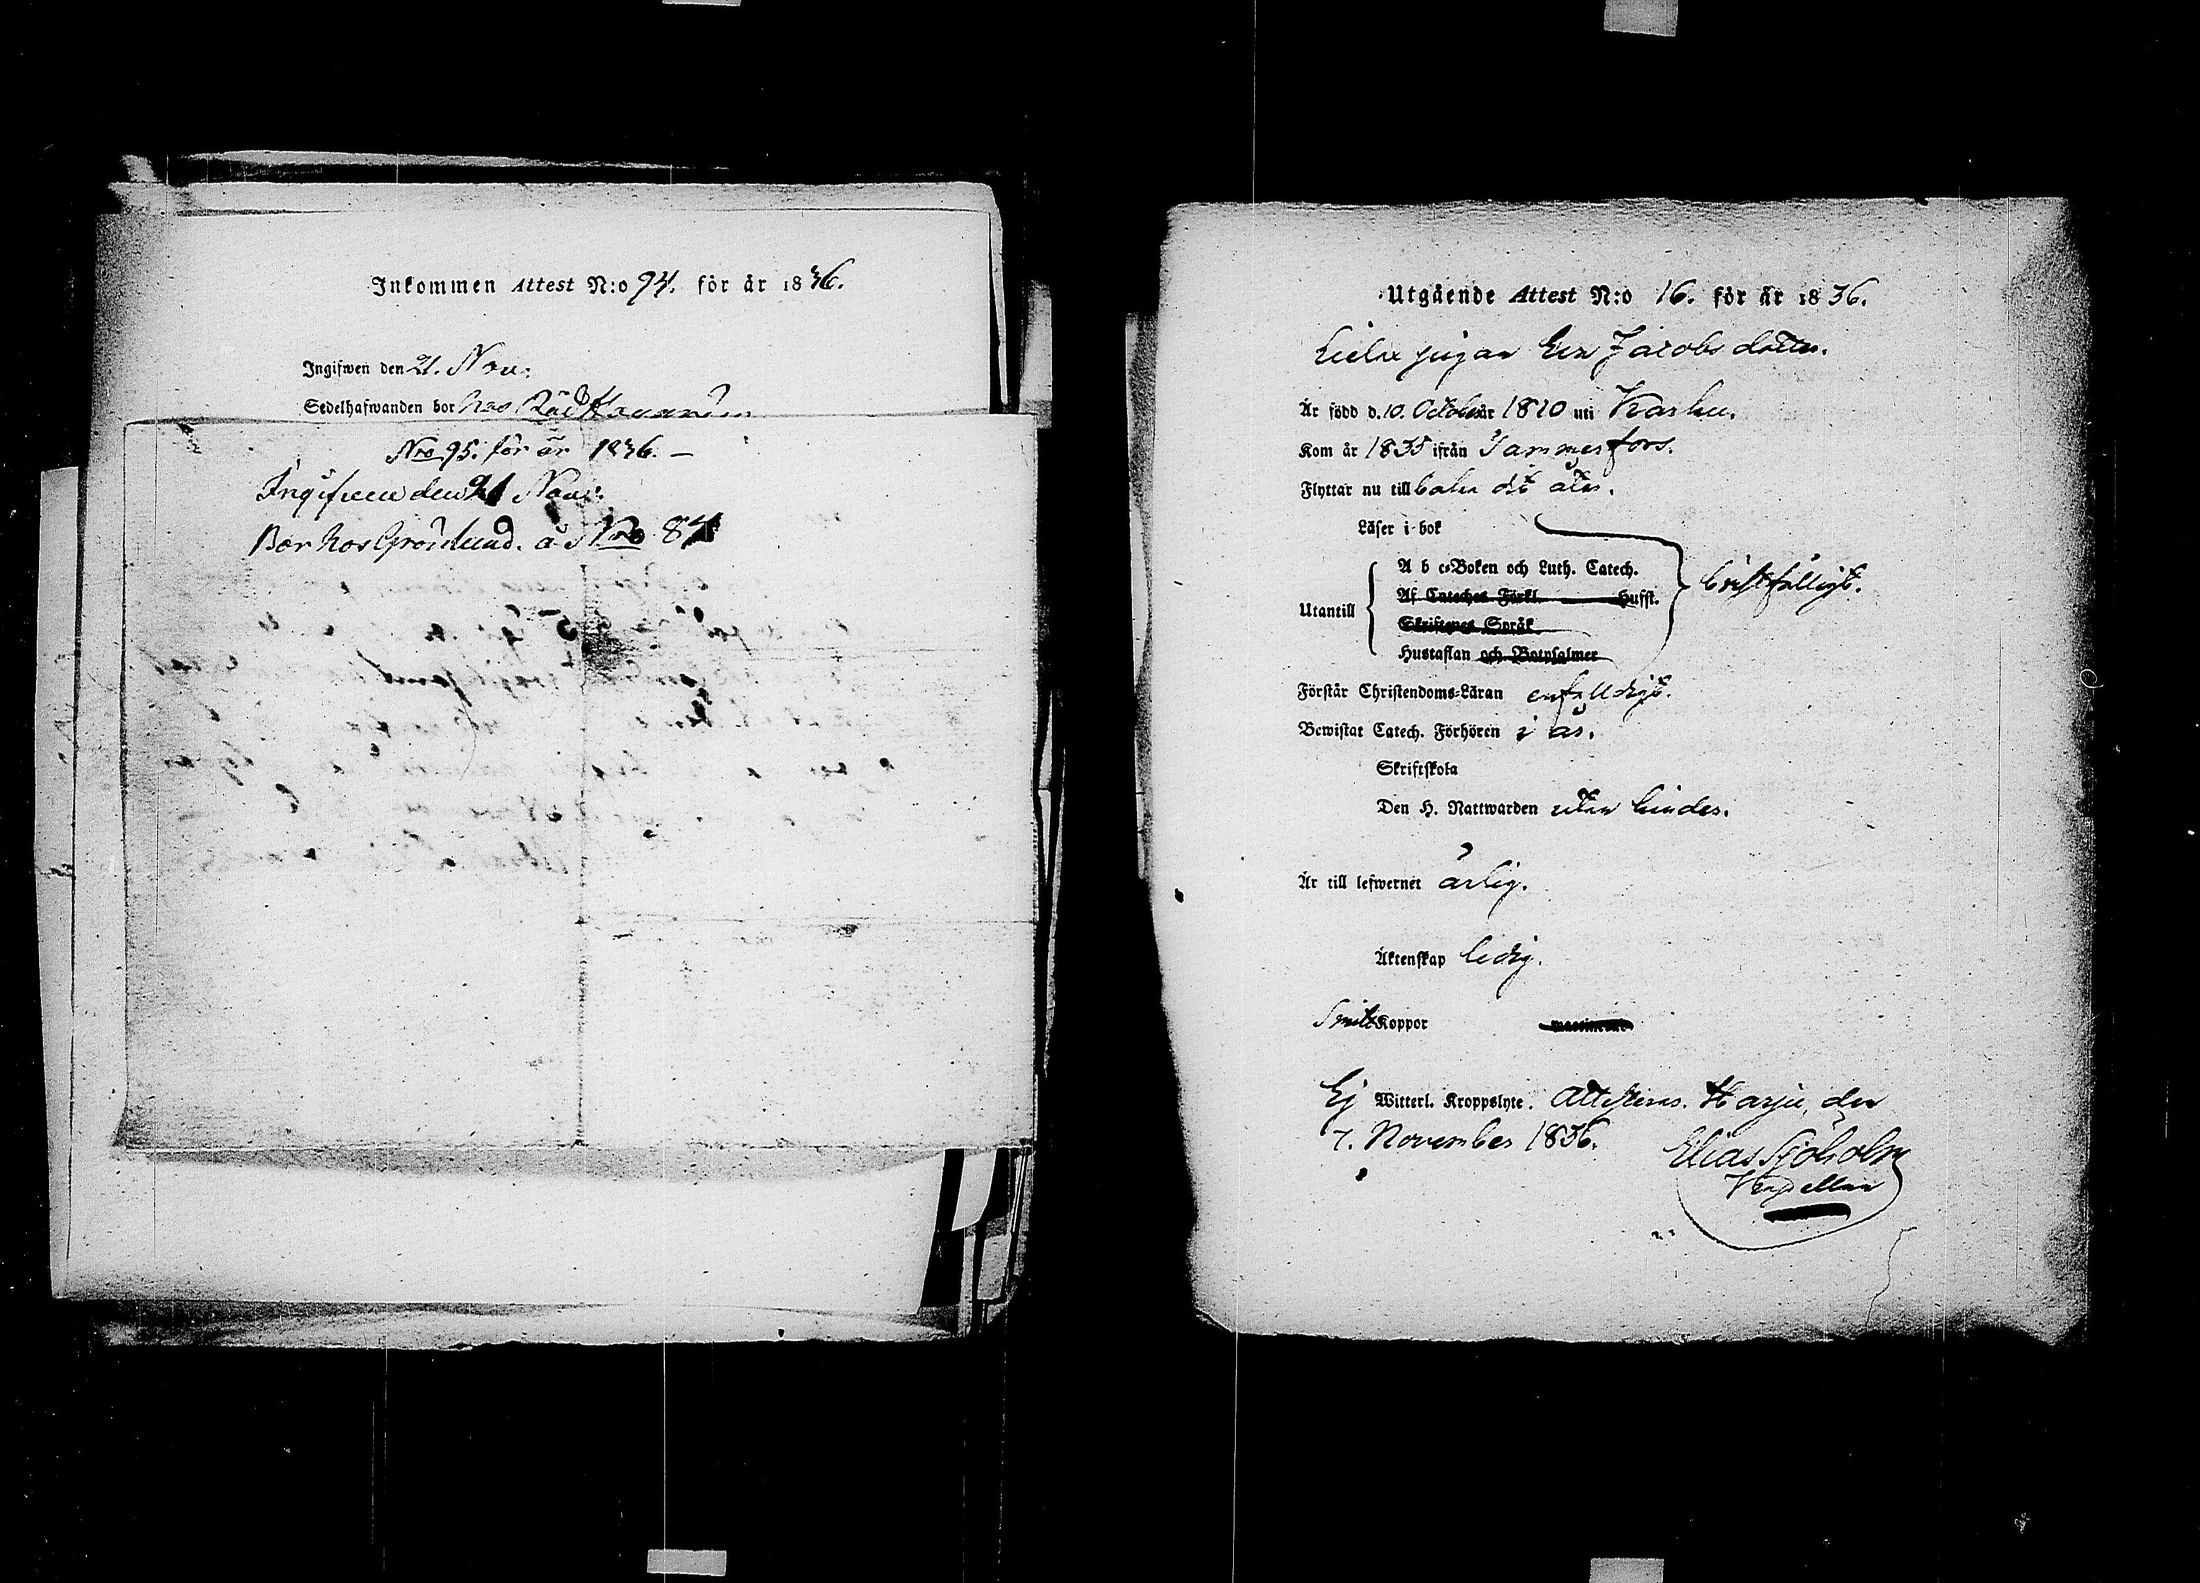 Inkommen Attest N:o 94. för år 1836.
Ingifwen den 21. Nov:
Sedelhafwanden bor hos
Nro 95. för år 1836. —
Ingifven den 21 Nov:
Bor hos Grönlund. å Nro 84
Utgående Attest N:o 16. för år 1836.
pigan Eva Jacobsdotter.
Är född d. 10. October år 1810 uti Karku.
Kom år 1835 ifrån Tammerfors.
Flyttar nu tillbaka dit åter.
Läser i bok
A b c-Boken och Luth. Catech.
Af Catechet Förkl. Husst.
Utantill
bristfälligt.
Skriftenes Språk
Hustaflan och Botpsalmer
Förstår Christendoms-Läran enfalldigt.
Bewistat Catech. Förhören i år.
Skriftskola
Den H. Nattwarden utan hinder.
Är till lefwernet ärlig.
Äktenskap ledig.
Smitt Koppor vaccinerat
Ej Witterl. Kroppslyte. Attesteras. Harju, den
7. November 1836.
Elias Sjöholm
Kapellan